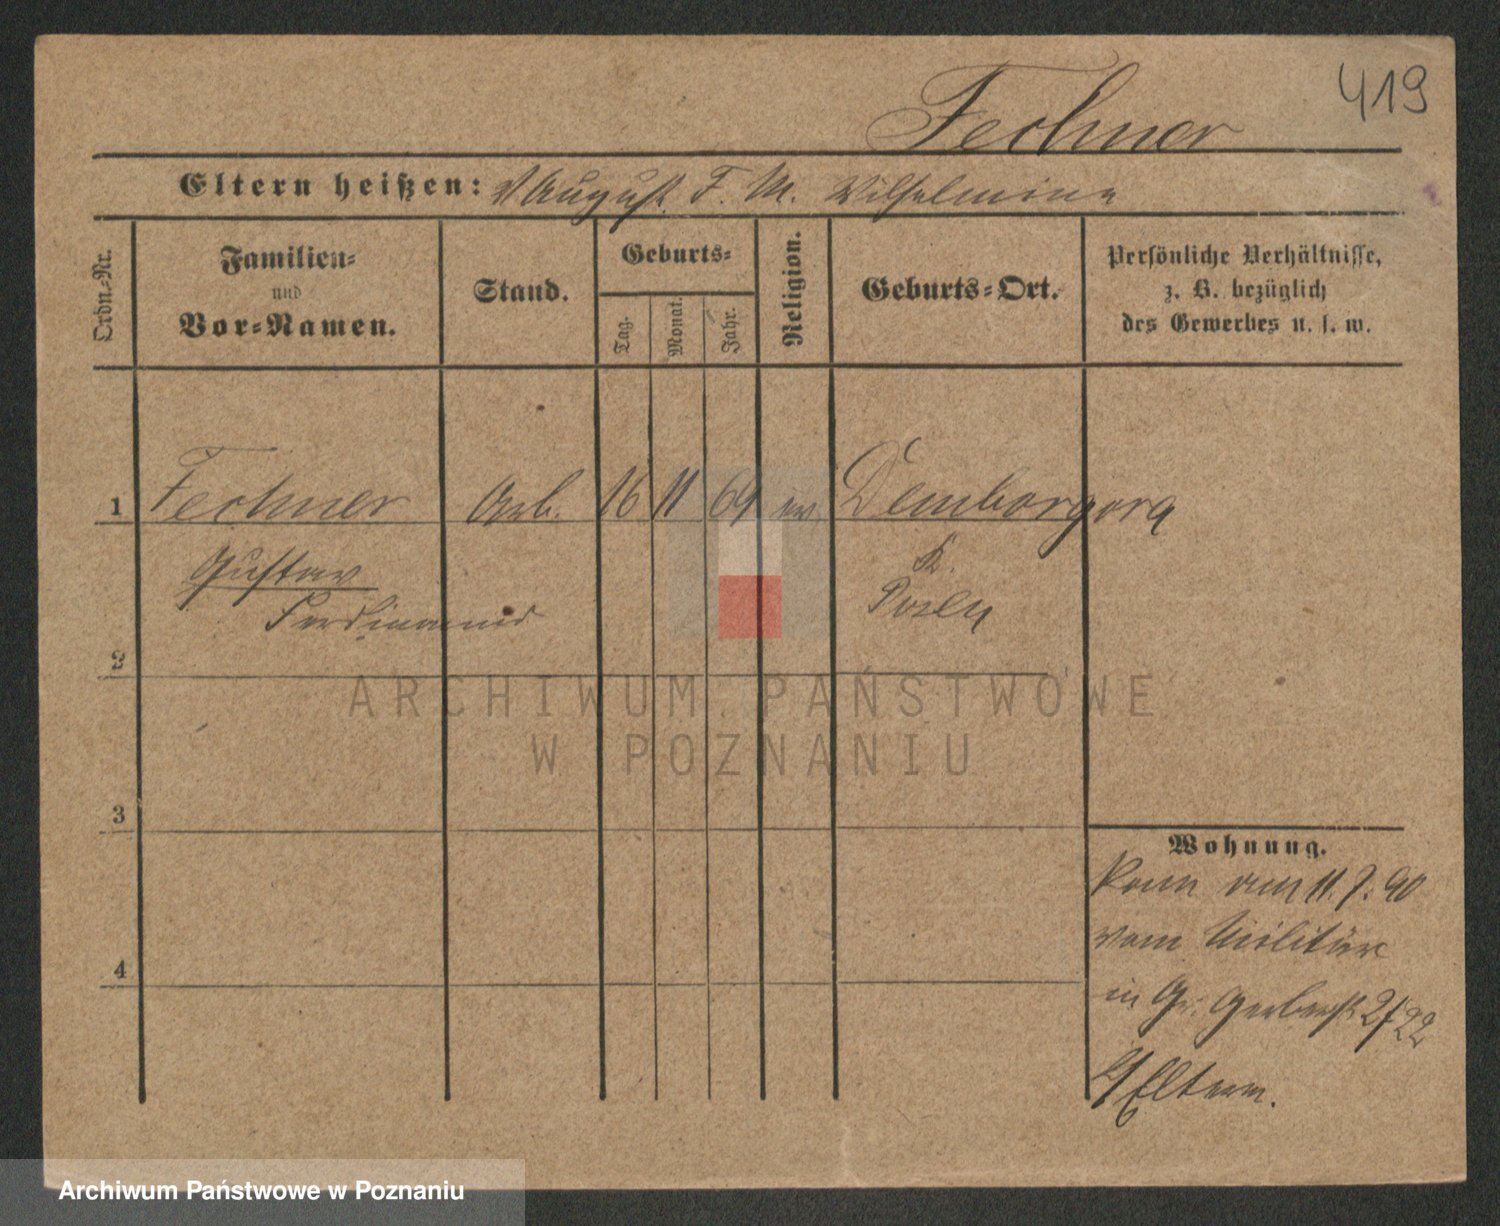 419
Fechner
Eltern heißen: V August. F. M. Wilhelmine
Ordn.-Nr.
Familien-
und
Vor-Namen.
Stand.
Geburts-
Tag.
Monat.
Jahr.
Religion.
Geburts-Ort.
Persönliche Verhältnisse,
z. B. bezüglich
des Gewerbes u. s. w.
1 Fechner Arb. 16 11 69 ev. Demborgora
Gustav K.
Ferdinand Posen
2
3
4
Wohnung.
am 11. 7. 90
vom Militär
in Gr. Gerberst. 2/22
Eltern.
ARCHIWUM PAŃSTWOWE
W POZNANIU
Archiwum Państwowe w Poznaniu